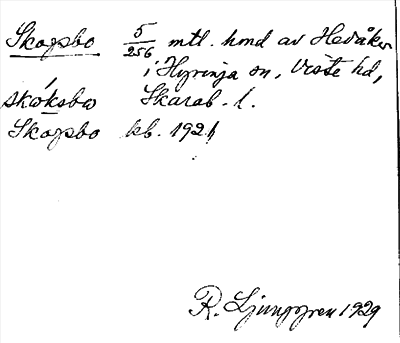 Skogsbo 5/256 mtl. hmd av Hedåker
i Hyringa sn, Viste hd,
skóksbo Skarab. l.
Skogsbo kb. 1921
R. Ljunggren 1929